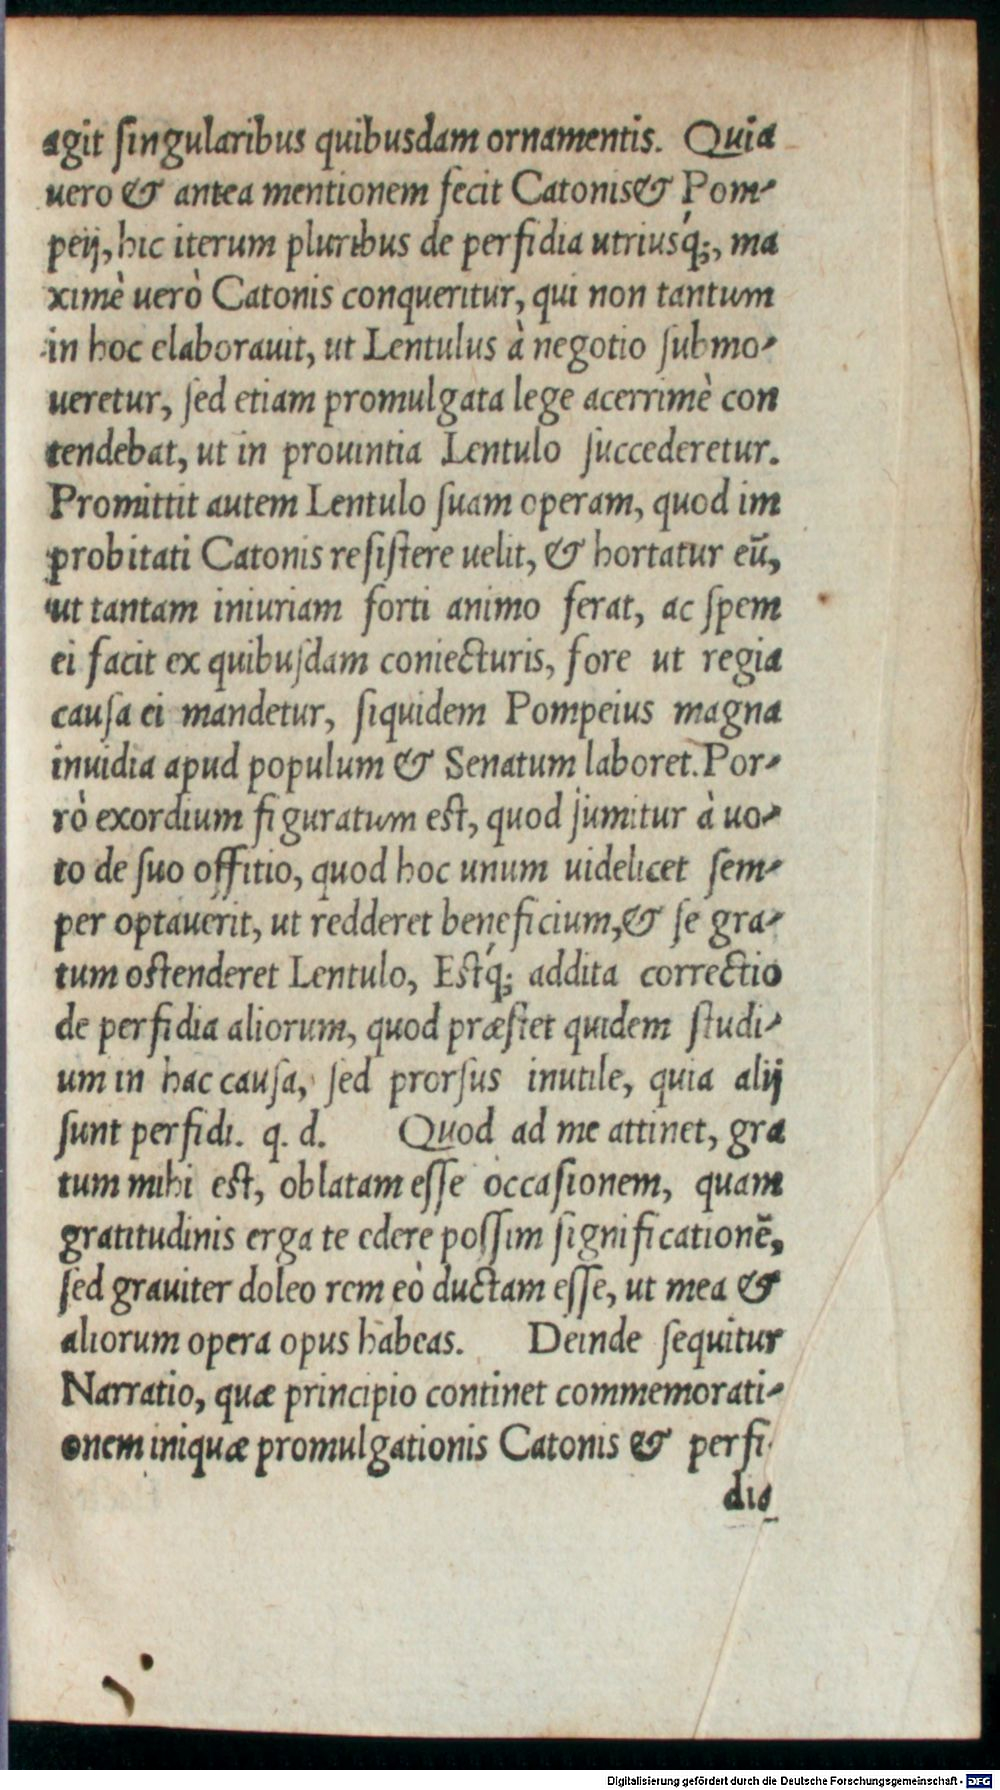 agit singularibus quibusdam ornamentis. Quia
vero & antea mentionem fecit Catonis & Pom-
peij, hic iterum pluribus de perfidia utriusq́;, ma
ximè uerò Catonis conqueritur, qui non tantum
in hoc elaborauit, ut Lentulus à negotio submo-
ueretur, sed etiam promulgata lege acerrimè con
tendebat, ut in prouintia Lentulo succederetur.
Promittit autem Lentulo suam operam, quod im
probitati Catonis resistere uelit, & hortatur eũ,
ut tantam iniuriam forti animo ferat, ac spem
ei facit ex quibusdam coniecturis, fore ut regia
causa ei mandetur, siquidem Pompeius magna
inuidia apud populum & Senatum laboret. Por-
rò exordium figuratum est, quod sumitur à uo-
to de suo offitio, quod hoc unum uidelicet sem-
per optauerit, ut redderet beneficium, & se gra-
tum ostenderet Lentulo, Estq́; addita correctio
de perfidia aliorum, quod præstet quidem studi-
um in hac causa, sed prorsus inutile, quia alij
sunt perfidi. q. d. Quod ad me attinet, gra
tum mihi est, oblatam esse occasionem, quam
gratitudinis erga te edere possim significationẽ,
sed grauiter doleo rem eò ductam esse, ut mea &
aliorum opera opus habeas. Deinde sequitur
Narratio, quæ principio continet commemorati-
onem iniquæ promulgationis Catonis & perfi-
diæ
Digitalisierung gefördert durch die Deutsche Forschungsgemeinschaft - DFG